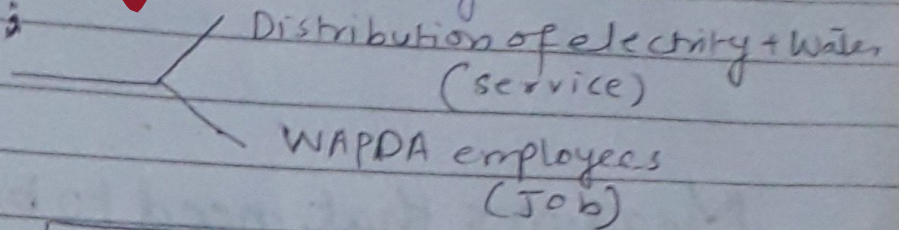 Distribution of electrity + Water
(service)
WAPDA employees
(Job)